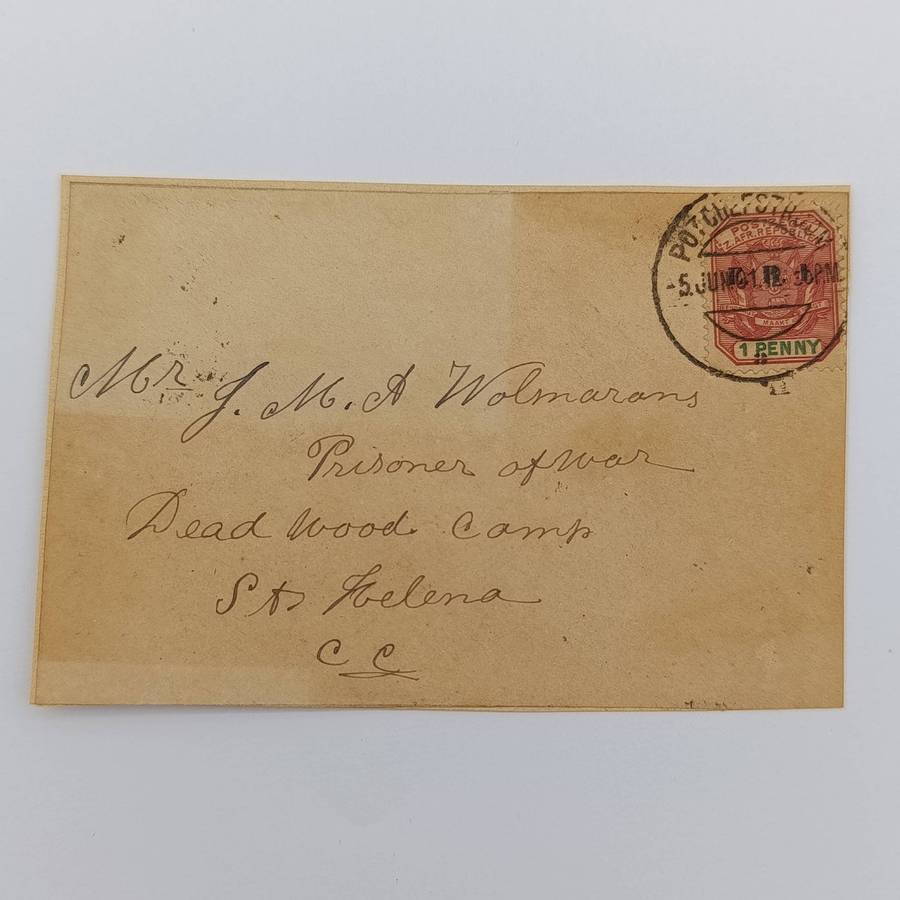 POTCHEFSTROOM
-5.JUN 01.12 30PM
POSTZEGEL
Z. AFR. REPUBLIEK
E. R. I.
MAAKT
1 PENNY
Mr J. M. A Wolmarans
Prisoner of war
Dead wood Camp
St Helena
C C